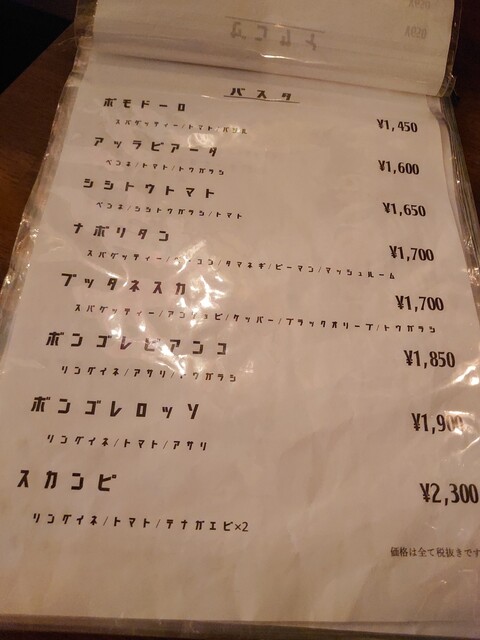 パスタ
ポモドーロ ¥1,450
スパゲッティー/トマト/バジル
アッラビアータ ¥1,600
ペンネ/トマト/トウガラシ
シシトウトマト ¥1,650
ペンネ/シシトウガラシ/トマト
ナポリタン ¥1,700
スパゲッティー/ベーコン/タマネギ/ピーマン/マッシュルーム
プッタネスカ ¥1,700
スパゲッティー/アンチョビ/ケッパー/ブラックオリーブ/トウガラシ
ボンゴレビアンコ ¥1,850
リングイネ/アサリ/トウガラシ
ボンゴレロッソ ¥1,900
リングイネ/トマト/アサリ
スカンピ ¥2,300
リングイネ/トマト/テナガエビ×2
価格は全て税抜きです